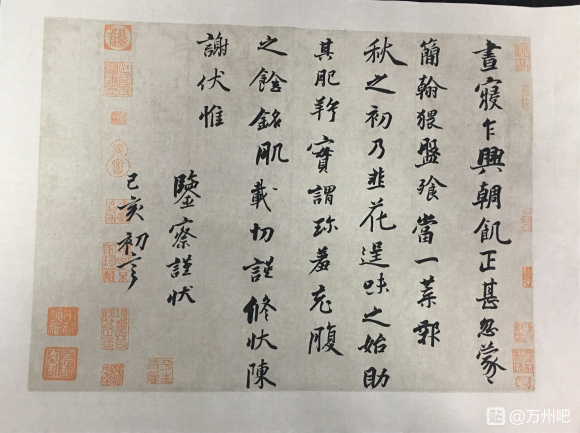 晝寢乍興朝飢正甚忽蒙
簡翰猥盤飧當一葉報
秋之初乃韭花逞味之始助
其肥羜實謂珍羞充腹
之餘銘肌載切謹修狀陳
謝伏惟
鑒察謹狀
己亥初
贴 @万州吧